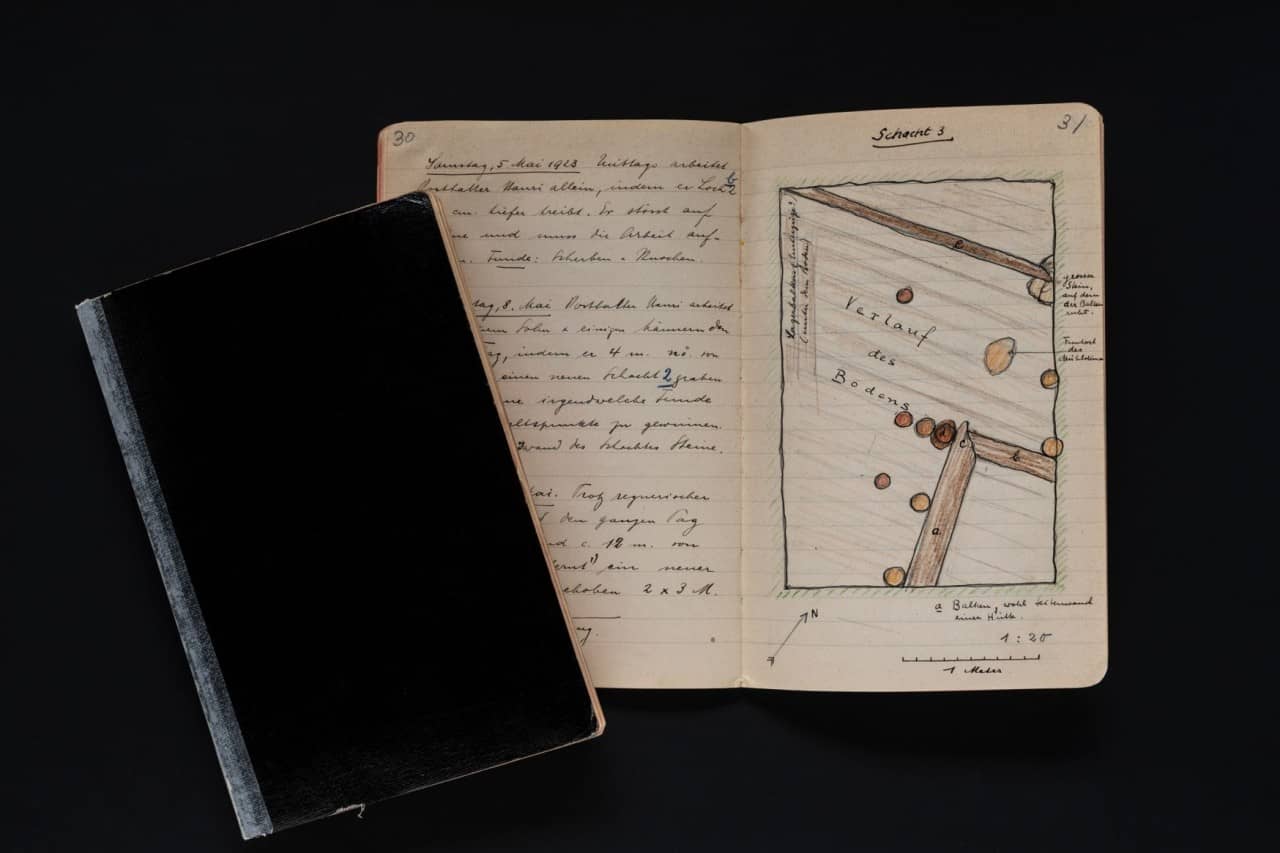 30
Samstag, 5 Mai 1923 Mittags arbeitet
Posthalter Hanri allein, indem er Loch 2
cm. tiefer treibt. Er stösst auf
ne und muss die Arbeit auf-
Funde: Scherben & Knochen.
tag, 8. Mai Posthalter Hanri arbeitet
Sohn & einigen Männern den
ag, indem er 4 m. nö. von
einen neuen Schacht 2 graben
ne irgendwelche Funde
altspunkte zu gewinnen.
wand des Schachtes Steine.
Mai. Trotz regnerischer
den ganzen Tag
nd c. 12 m. von
fernt 1) ein neuer
gehoben 2 x 3 M.
31
Schacht 3
Lagerbalken (Unterzüge)
(unter dem Boden)
e
grosser
Stein,
auf dem
der Balken
ruht.
Verlauf
des
Bodens
Fundort
des
Mühlsteins
d
c
b
a
a Balken, wohl Seitenwand
einer Hütte.
N
1 : 20
1 Meter